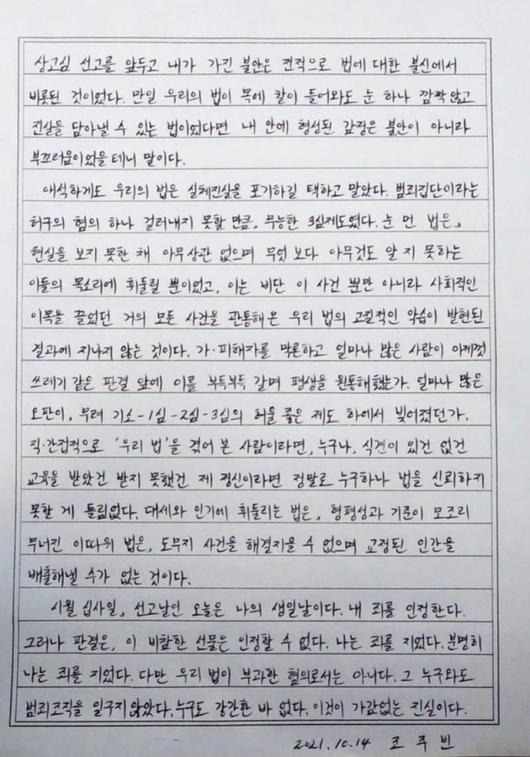 상고심 선고를 앞두고 내가 가진 불안은 전적으로 법에 대한 불신에서
비롯된 것이었다. 만일 우리의 법이 목에 칼이 들어와도 눈 하나 깜짝 않고
진실을 담아낼 수 있는 법이었다면 내 안에 형성된 감정은 불안이 아니라
부끄러움이었을 테니 말이다.
애석하게도 우리의 법은 실체진실을 포기하길 택하고 말았다. 범죄집단이라는
허구의 혐의 하나 걸러내지 못할 만큼, 무능한 3심제도였다. 눈 먼 법은,
현실을 보지 못한 채 아무상관 없으며 무엇 보다 아무것도 알 지 못하는
이들의 목소리에 휘둘릴 뿐이었고, 이는 비단 이 사건 뿐만 아니라 사회적인
이목을 끌었던 거의 모든 사건을 관통해온 우리 법의 고질적인 악습이 발현된
결과에 지나지 않는 것이다. 가·피해자를 막론하고 얼마나 많은 사람이 이제껏
쓰레기 같은 판결 앞에 이를 부득부득 갈며 평생을 원통해했는가. 얼마나 많은
오판이, 무려 기소-1심-2심-3심의 허울 좋은 제도 하에서 빚어졌던가.
직·간접적으로 '우리 법'을 겪어 본 사람이라면, 누구나, 식견이 있건 없건
교육을 받았건 받지 못했건 제 정신이라면 정말로 누구하나 법을 신뢰하지
못할 게 틀림없다. 대세와 인기에 휘둘리는 법은, 형평성과 기준이 모조리
무너진 이따위 법은, 도무지 사건을 해결지을 수 없으며 교정된 인간을
배출해낼 수가 없는 것이다.
시월 십사일, 선고날인 오늘은 나의 생일날이다. 내 죄를 인정한다.
그러나 판결은, 이 비참한 선물은 인정할 수 없다. 나는 죄를 지었다. 분명히
나는 죄를 지었다. 다만 우리 법이 부과한 혐의로서는 아니다. 그 누구와도
범죄조직을 일구지 않았다. 누구도 강간한 바 없다. 이것이 가감없는 진실이다.
2021.10.14 조주빈